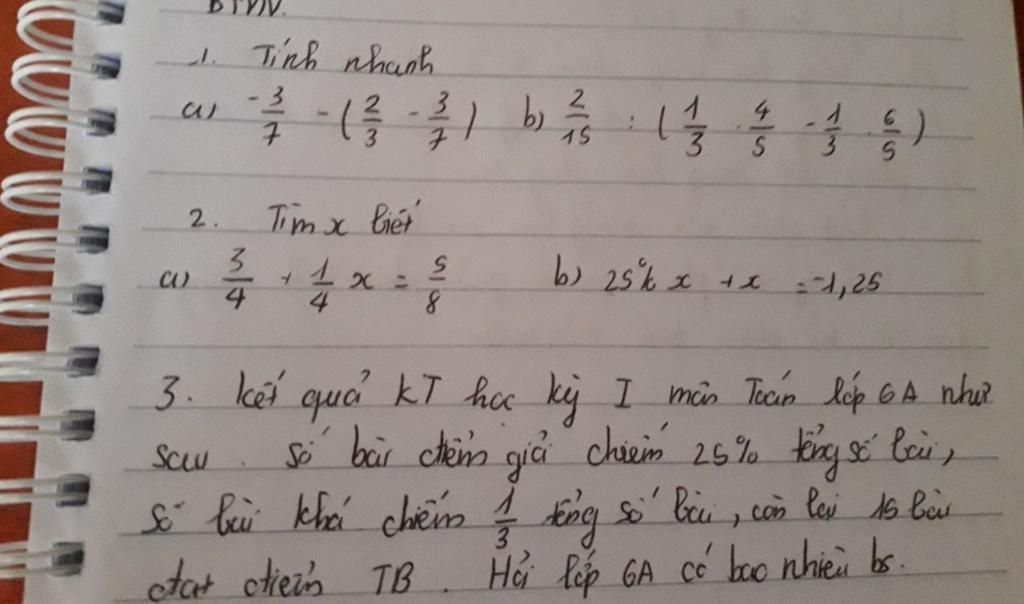 BTVN.
1. Tính nhanh
a) -3/7 - (2/3 - 3/7) b) 2/15 : (1/3 . 4/5 - 1/3 . 6/5)
2. Tìm x biết
a) 3/4 + 1/4 x = 5/8 b) 25% x + x = -1,25
3. Kết quả KT học kỳ I môn Toán lớp 6A như
sau. Số bài điểm giỏi chiếm 25% tổng số bài,
số bài khá chiếm 1/3 tổng số bài, còn lại 15 bài
đạt điểm TB. Hỏi lớp 6A có bao nhiêu bs.